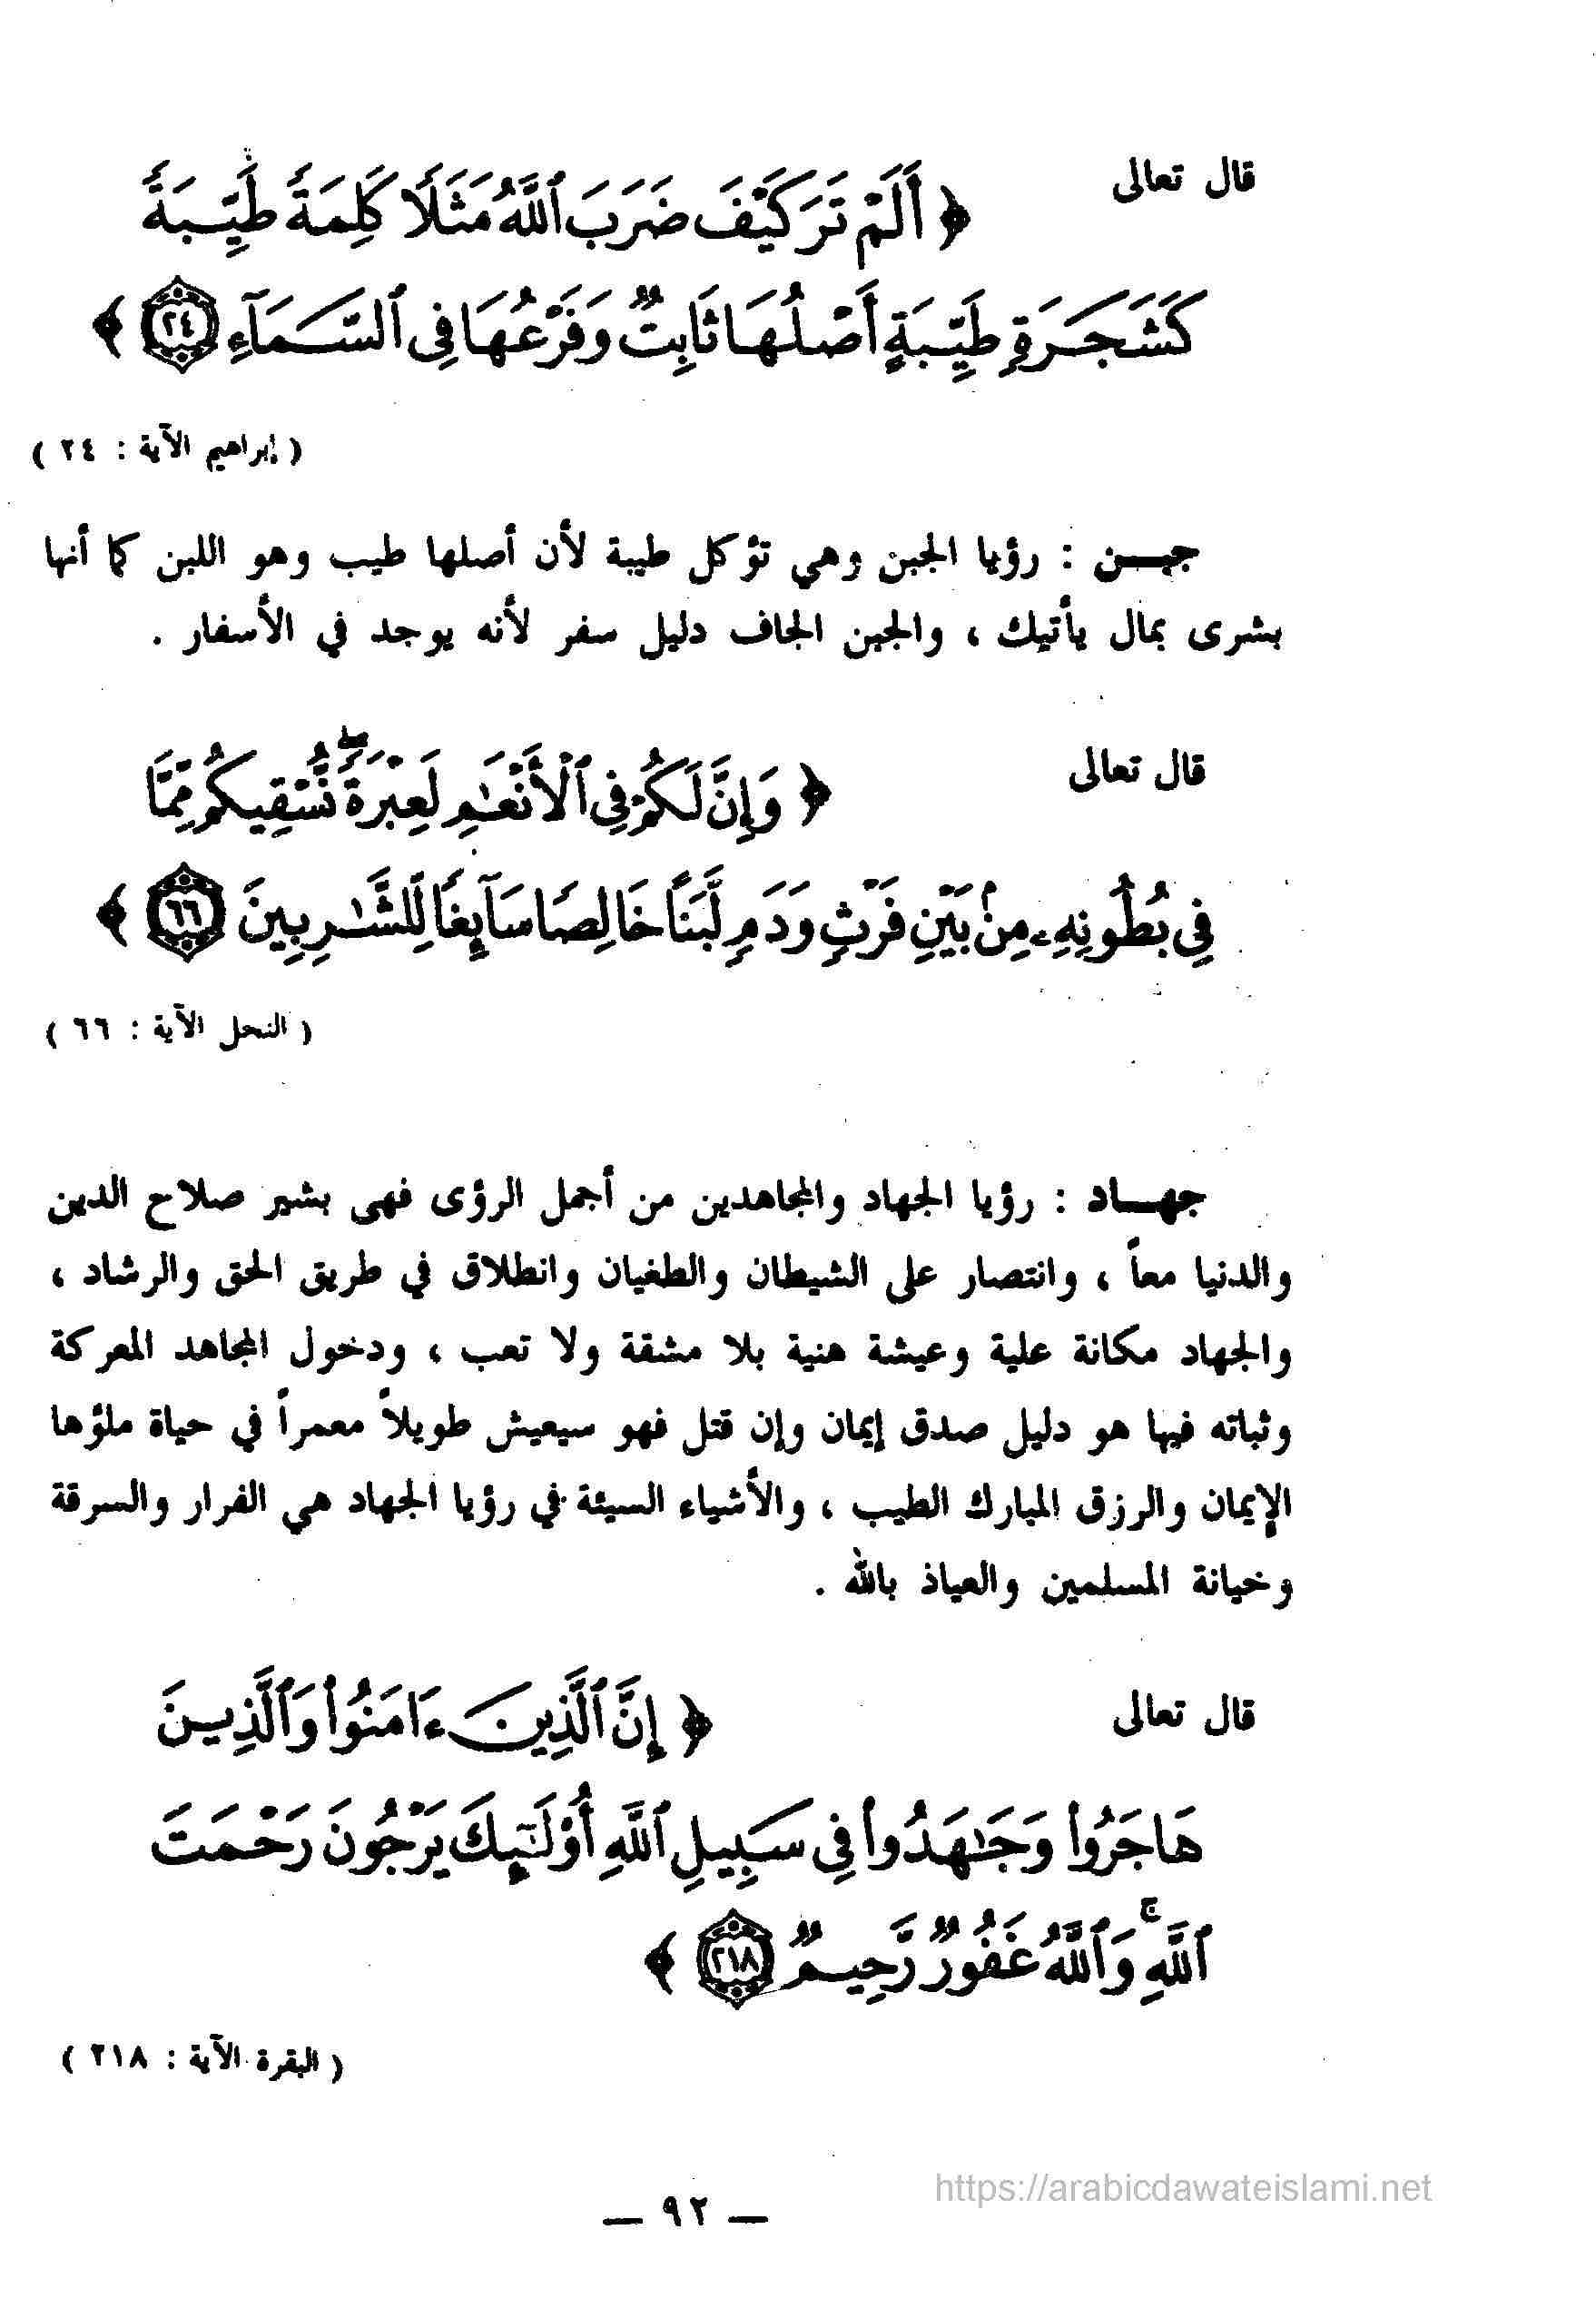 قال تعالى ﴿ أَلَمْ تَرَ كَيْفَ ضَرَبَ ٱللَّهُ مَثَلًا كَلِمَةً طَيِّبَةً
كَشَجَرَةٍ طَيِّبَةٍ أَصْلُهَا ثَابِتٌ وَفَرْعُهَا فِى ٱلسَّمَآءِ ٢٤ ﴾
( إبراهيم الآية : ٢٤ )
جبـن : رؤيا الجبن وهي تؤكل طيبة لأن أصلها طيب وهو اللبن كما أنها
بشرى بمال يأتيك ، والجبن الجاف دليل سفر لأنه يوجد في الأسفار .
قال تعالى ﴿ وَإِنَّ لَكُمْ فِى ٱلْأَنْعَٰمِ لَعِبْرَةً ۖ نُّسْقِيكُم مِّمَّا
فِى بُطُونِهِۦ مِنۢ بَيْنِ فَرْثٍ وَدَمٍ لَّبَنًا خَالِصًا سَآئِغًا لِّلشَّٰرِبِينَ ٦٦ ﴾
( النحل الآية : ٦٦ )
جهـاد : رؤيا الجهاد والمجاهدين من أجمل الرؤى فهى بشير صلاح الدين
والدنيا معاً ، وانتصار على الشيطان والطغيان وانطلاق في طريق الحق والرشاد ،
والجهاد مكانة علية وعيشة هنية بلا مشقة ولا تعب ، ودخول المجاهد المعركة
وثباته فيها هو دليل صدق إيمان وإن قتل فهو سيعيش طويلاً معمراً في حياة ملؤها
الإيمان والرزق المبارك الطيب ، والأشياء السيئة في رؤيا الجهاد هي الفرار والسرقة
وخيانة المسلمين والعياذ بالله .
قال تعالى ﴿ إِنَّ ٱلَّذِينَ ءَامَنُوا۟ وَٱلَّذِينَ
هَاجَرُوا۟ وَجَٰهَدُوا۟ فِى سَبِيلِ ٱللَّهِ أُو۟لَٰٓئِكَ يَرْجُونَ رَحْمَتَ
ٱللَّهِ ۚ وَٱللَّهُ غَفُورٌ رَّحِيمٌ ٢١٨ ﴾
( البقرة الآية : ٢١٨ )
https://arabicdawateislami.net
— ٩٢ —